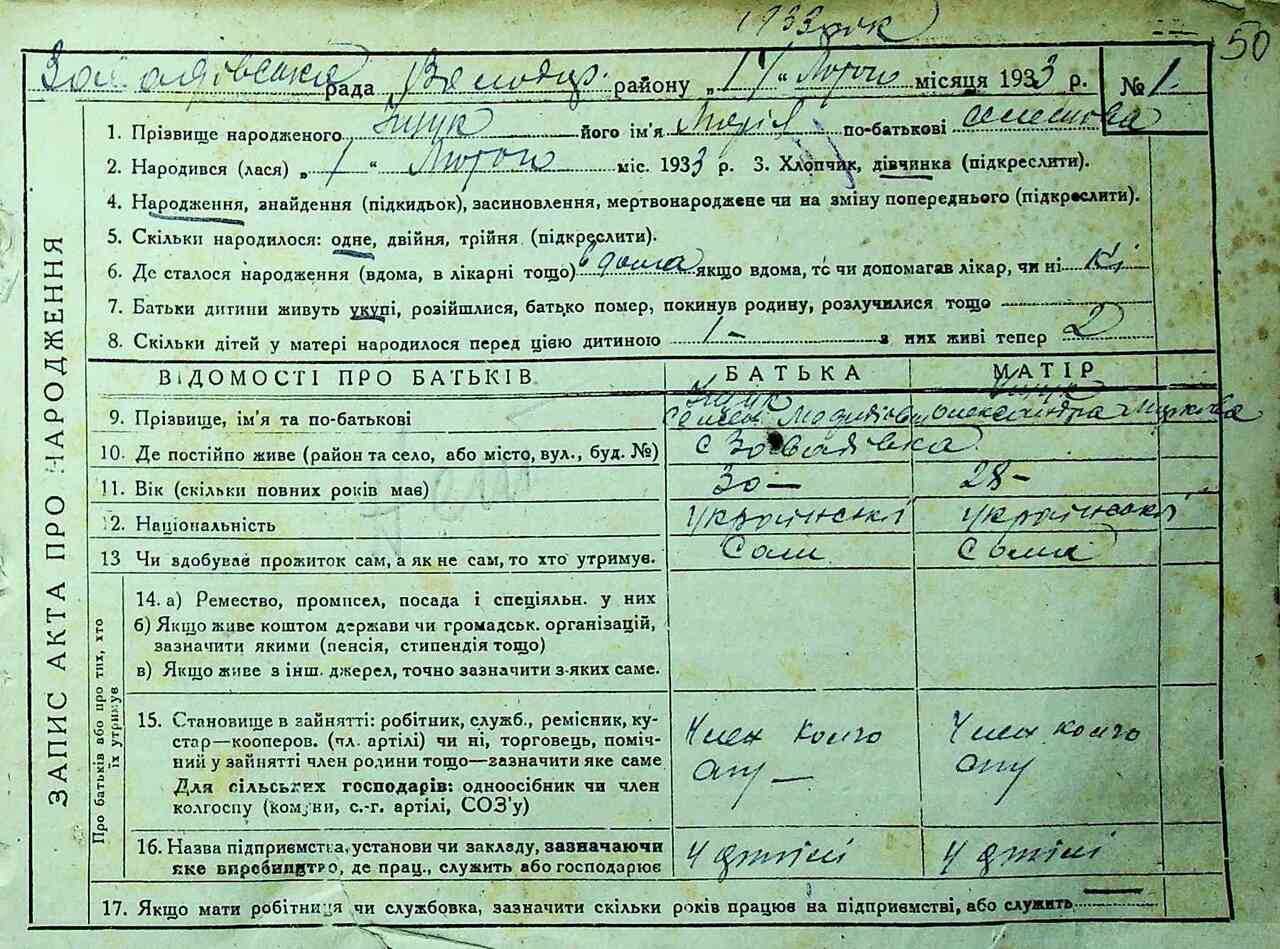 1933 рік
50
рада району „1“ Лютого місяця 1933 р. № 1
1. Прізвище народженого його ім'я Марія по-батькові Семенова
2. Народився (лася) „1“ Лютого міс. 1933 р. 3. Хлопчик, дівчинка (підкреслити).
4. Народження, знайдення (підкидьок), засиновлення, мертвонароджене чи на зміну попереднього (підкреслити).
5. Скільки народилося: одне, двійня, трійня (підкреслити).
6. Де сталося народження (вдома, в лікарні тощо) вдома якщо вдома, то чи допомагав лікар, чи ні ні
7. Батьки дитини живуть укупі, розійшлися, батько помер, покинув родину, розлучилися тощо
8. Скільки дітей у матері народилося перед цією дитиною 1– з них живі тепер 2
ЗАПИС АКТА ПРО НАРОДЖЕННЯ
ВІДОМОСТІ ПРО БАТЬКІВ БАТЬКА МАТІР
9. Прізвище, ім'я та по-батькові Семен Олександра
10. Де постійно живе (район та село, або місто, вул., буд. №) с
11. Вік (скільки повних років має) 30– 28–
12. Національність українські українські
13 Чи вдобуває прожиток сам, а як не сам, то хто утримує. Сами Сами
Про батьків або про тих, хто їх утримує
14. а) Ремество, промисел, посада і спеціяльн. у них
б) Якщо живе коштом держави чи громадськ. організацій,
зазначити якими (пенсія, стипендія тощо)
в) Якщо живе з інш. джерел, точно зазначити з-яких саме.
15. Становище в зайнятті: робітник, служб., ремісник, ку-
стар—кооперов. (чл. артілі) чи ні, торговець, поміч-
ний у зайнятті член родини тощо—зазначити яке саме
Для сільських господарів: одноосібник чи член
колгоспу (комуни, с.-г. артілі, СОЗ'у)
Член колго Член колго
спу – спу
16. Назва підприємства, установи чи закладу, зазначаючи
яке виробництво, де прац., служить або господарює
У артілі У артілі
17. Якщо мати робітниця чи службовка, зазначити скільки років працює на підприємстві, або служить